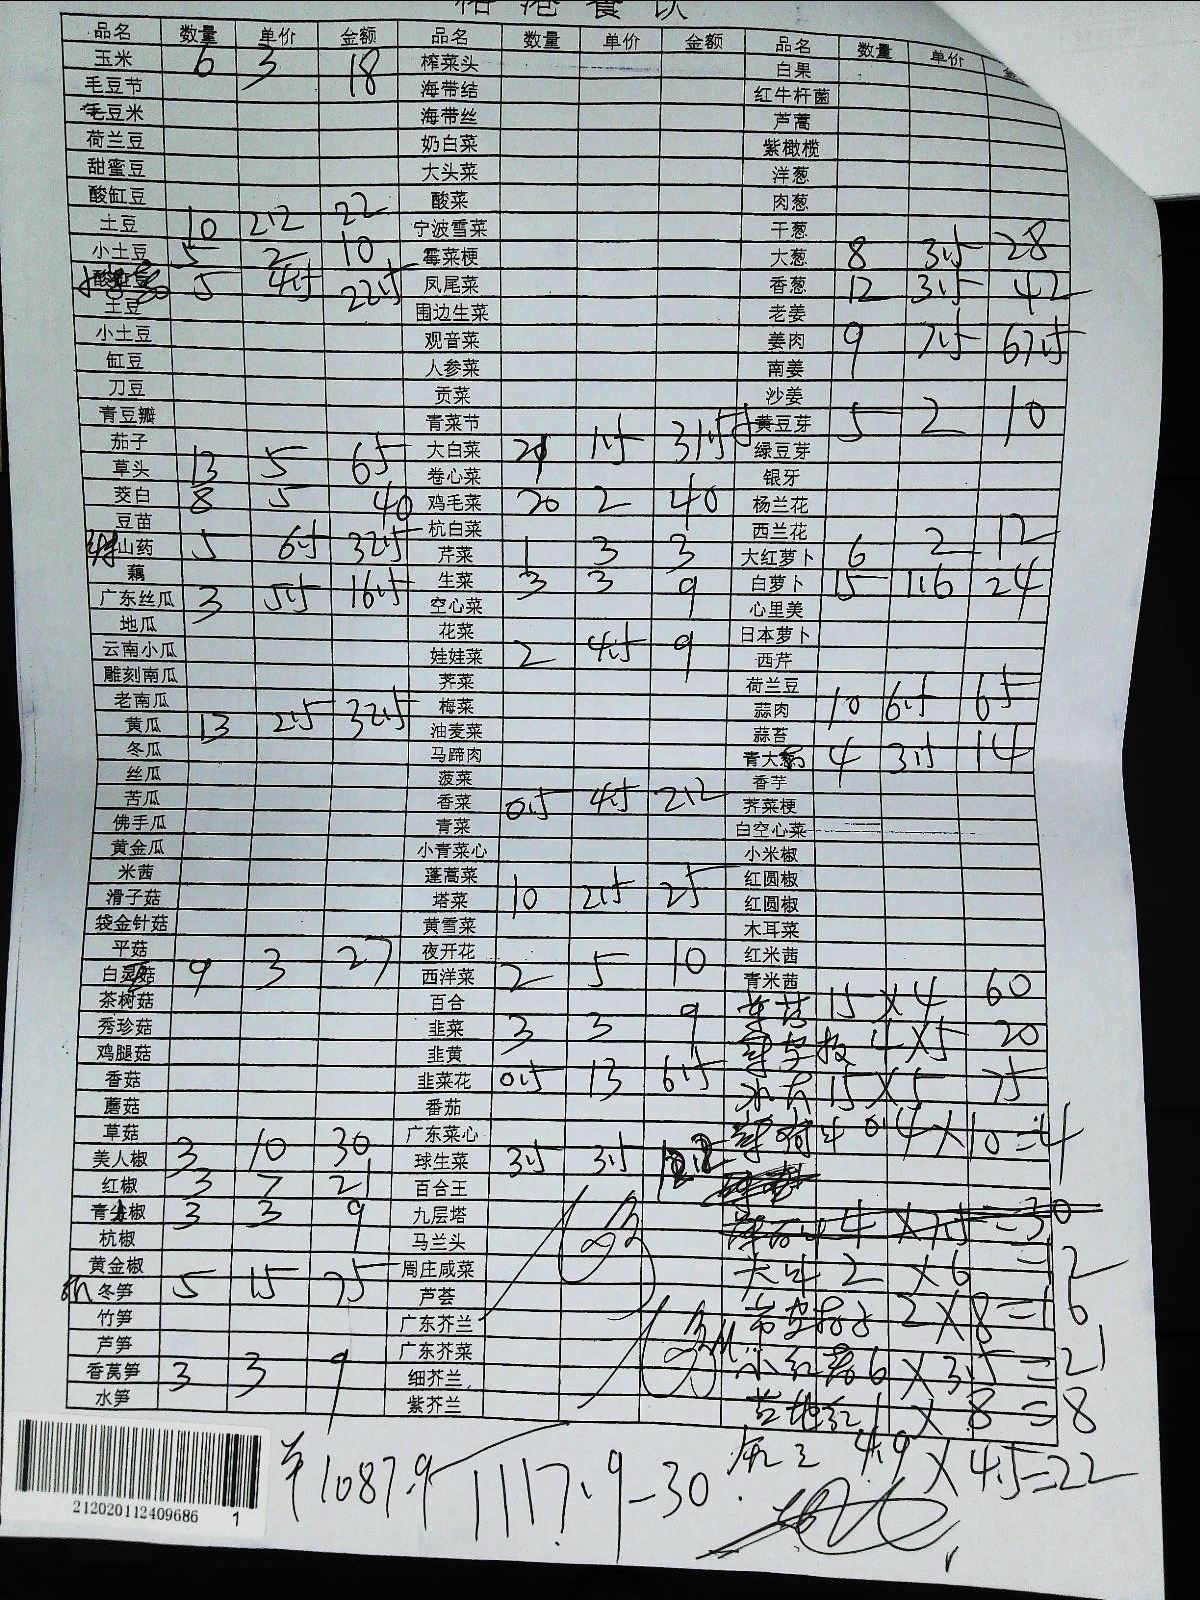 裕港餐饮
品名 数量 单价 金额 品名 数量 单价 金额 品名 数量 单价
玉米 6 3 18 榨菜头 白果
毛豆节 海带结 红牛杆菌
毛豆米 海带丝 芦蒿
荷兰豆 奶白菜 紫橄榄
甜蜜豆 大头菜 洋葱
酸缸豆 酸菜 肉葱
土豆 10 2.2 22 宁波雪菜 干葱
小土豆 5 2 10 霉菜梗 大葱 8 3.5 28
5 4.5 22.5 凤尾菜 香葱 12 3.5 42
土豆 围边生菜 老姜
小土豆 观音菜 姜肉 9 7.5 67.5
缸豆 人参菜 南姜
刀豆 贡菜 沙姜
青豆瓣 青菜节 黄豆芽 5 2 10
茄子 大白菜 21 1.5 31.5 绿豆芽
草头 13 5 65 卷心菜 银牙
茭白 8 5 40 鸡毛菜 20 2 40 杨兰花
豆苗 杭白菜 西兰花
山药 5 6.5 32.5 芹菜 1 3 3 大红萝卜 6 2 12
藕 生菜 3 3 9 白萝卜 15 1.6 24
广东丝瓜 3 5.5 16.5 空心菜 心里美
地瓜 花菜 日本萝卜
云南小瓜 娃娃菜 2 4.5 9 西芹
雕刻南瓜 荠菜 荷兰豆
老南瓜 梅菜 蒜肉 10 6.5 65
黄瓜 13 2.5 32.5 油麦菜 蒜苔
冬瓜 马蹄肉 青大葱 4 3.5 14
丝瓜 菠菜 香芋
苦瓜 香菜 0.5 4.5 2.2 荠菜梗
佛手瓜 青菜 白空心菜
黄金瓜 小青菜心 小米椒
米茜 蓬蒿菜 红圆椒
滑子菇 塔菜 10 2.5 25 红圆椒
袋金针菇 黄雪菜 木耳菜
平菇 夜开花 红米茜
白灵菇 9 3 27 西洋菜 2 5 10 青米茜
茶树菇 百合 15×4 60
秀珍菇 韭菜 3 3 9 4×5 20
鸡腿菇 韭黄
香菇 韭菜花 0.5 13 6.5 15×5 75
蘑菇 番茄
草菇 广东菜心 0.4×10=4
美人椒 3 10 30 球生菜 3.5 3.5 12.2
红椒 3 7 21 百合王
青尖椒 3 3 9 九层塔 4×7.5=30
杭椒 马兰头
黄金椒 周庄咸菜 2×6=12
冬笋 5 15 75 芦荟 2×8=16
竹笋 广东芥兰
芦笋 广东芥菜 6×3.5=21
香莴笋 3 3 9 细芥兰 1×8=8
水笋 紫芥兰
4.9×4.5=22
¥1087.9 1117.9-30
212020112409686 1